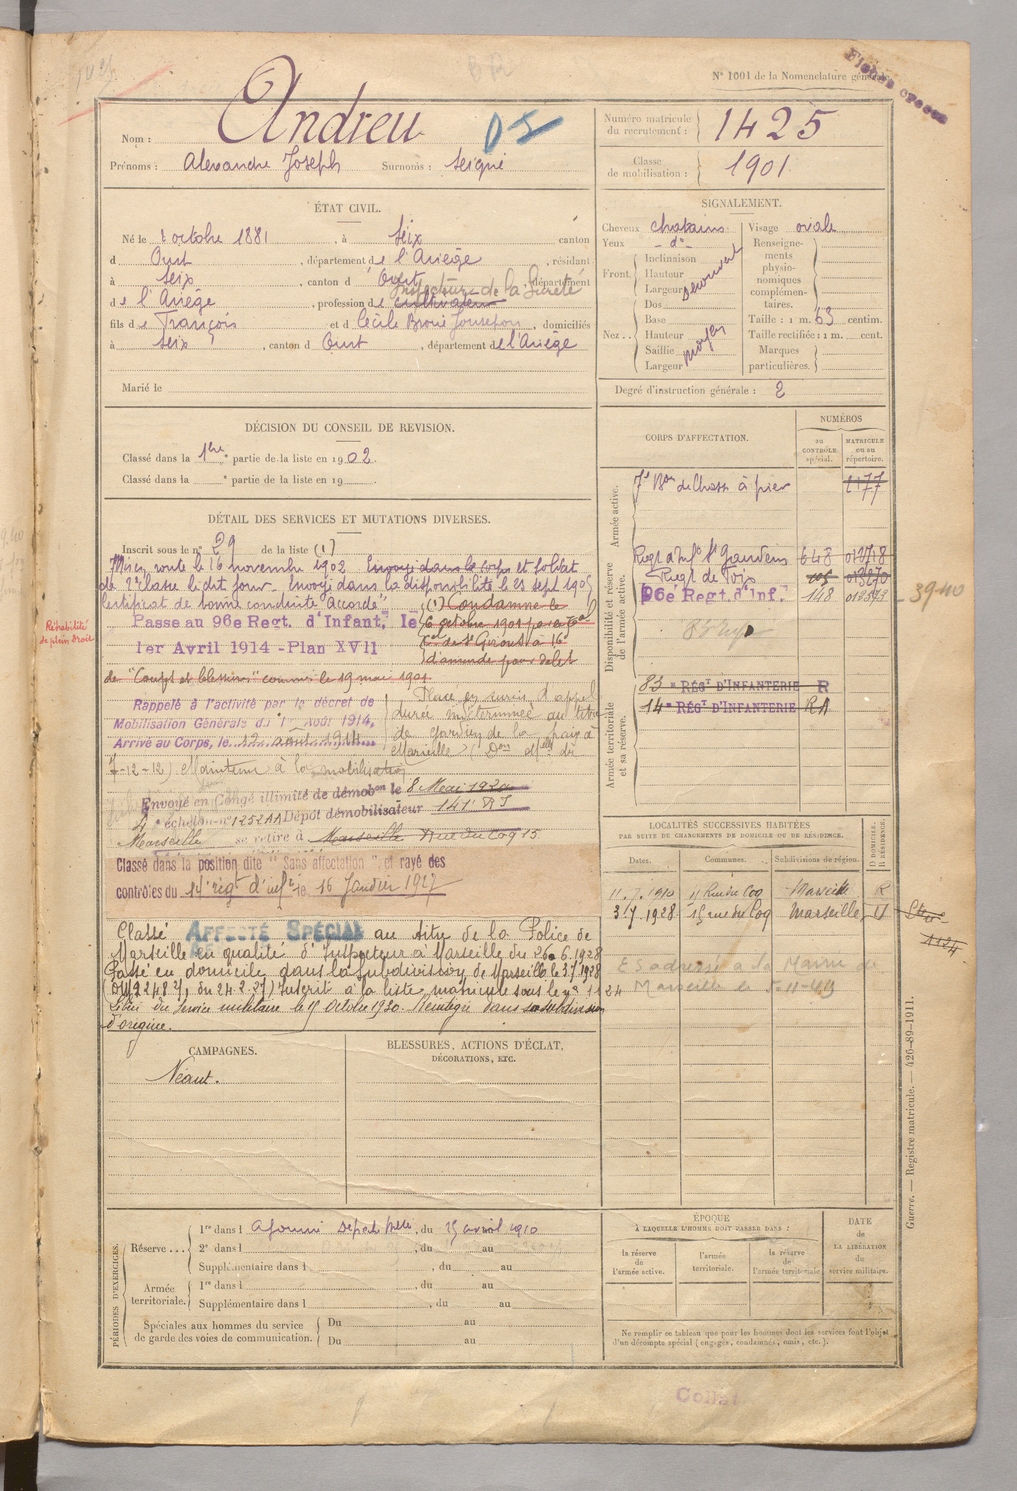 N° 1001 de la Nomenclature générale
Nom : Andreu
DI
Prénoms : Alexandre Joseph Surnoms : Seigné
Numéro matricule du recrutement : 1425
Classe de mobilisation : 1901
ÉTAT CIVIL.
Né le octobre 1881, à Seix canton
d Oust, département de l'Ariège, résidant
à Seix, canton d'Oust, département
Inspecteur de la Sûreté
de l'Ariège, profession de cultivateur
fils de François et d Cécile domiciliés
à Seix, canton d Oust, département de l'Ariège
Marié le
SIGNALEMENT.
Cheveux chatains
Yeux - d° -
Front. Inclinaison
Hauteur
Largeur
Nez Dos
Base
Hauteur
Saillie
Largeur
moyen
Visage ovale
Renseignements physionomiques complémentaires.
Taille : 1 m. 63 centim.
Taille rectifiée : 1 m. cent.
Marques particulières.
Degré d'instruction générale : 2
DÉCISION DU CONSEIL DE REVISION.
Classé dans la 1ère partie de la liste en 1902.
Classé dans la partie de la liste en 19
DÉTAIL DES SERVICES ET MUTATIONS DIVERSES.
Inscrit sous le n° 29 de la liste (1)
Mis en route le 16 novembre 1902. Envoyé dans le corps et soldat
de 2e classe le dit jour. Envoyé dans la disponibilité le 23 sept 1905
Certificat de bonne conduite "Accordé"
(1) Condamné le
Passe au 96e Regt. d'Infant. le
6 octobre 1901 par le Tal
1er Avril 1914 - Plan XVII
Cel de St Girons à 16f
d'amende pour délit
de "Coups et blessures" commis le 19 mai 1901
Réhabilité de plein droit
Rappelé à l'activité par le décret de
Mobilisation Générale du 1er Août 1914,
Arrivé au Corps, le 12 août 1914
Placé en sursis d'appel
durée indéterminée au titre
de gardien de la paix à
Marseille
7-12-12) Maintenu à la mobilisation
Envoyé en Congé illimité de démobon le 8 Mai 1920
4e échelon n° 1252 AA Dépôt démobilisateur 141e RI
Marseille se retire à Marseille Rue du Coq 15
Classé dans la position dite "Sans affectation" et rayé des
contrôles du 14e régt d'infie le 16 Janvier 1927
Classé AFFECTÉ SPÉCIAL au titre de la Police de
Marseille en qualité d'Inspecteur à Marseille du 26.6.1928
Passé en domicile dans la Subdivision de Marseille le 3.7.1928
Inscrit à la liste matricule sous le n° 1124
Libéré du service militaire le 15 Octobre 1930. Réintégré dans sa subdivision
d'origine.
CORPS D'AFFECTATION.
NUMÉROS
AU CONTRÔLE spécial.
MATRICULE ou au répertoire.
Armée active.
7e Bon de Chass à pied 2177
Disponibilité et réserve de l'armée active.
Regt d'Infie St Gaudens 648
Regt de Foix
96e Regt. d'Inf. 148
3940
Armée territoriale et sa réserve.
83e RÉGT D'INFANTERIE R
14e RÉGT D'INFANTERIE RA
LOCALITÉS SUCCESSIVES HABITÉES
PAR SUITE DE CHANGEMENTS DE DOMICILE OU DE RÉSIDENCE.
Dates. Communes. Subdivisions de région. D DOMICILE. R RÉSIDENCE.
11.7.1910 11 Rue du Coq Marseille R
3.7.1928 15 rue du Coq Marseille D
1124
ES adressé à la Mairie de
Marseille le
CAMPAGNES.
Néant.
BLESSURES, ACTIONS D'ÉCLAT,
DÉCORATIONS, ETC.
PÉRIODES D'EXERCICES.
Réserve 1re dans l du 15 avril 1910
2e dans l, du au
Supplémentaire dans l, du au
Armée territoriale. 1re dans l, du au
Supplémentaire dans l, du au
Spéciales aux hommes du service de garde des voies de communication. Du au
Du au
ÉPOQUE
À LAQUELLE L'HOMME DOIT PASSER DANS :
la réserve de l'armée active.
l'armée territoriale.
la réserve de l'armée territoriale
DATE de LA LIBÉRATION du service militaire.
Ne remplir ce tableau que pour les hommes dont les services font l'objet
d'un décompte spécial (engagés, condamnés, omis, etc.).
Guerre. — Registre matricule. — 426-89-1911.